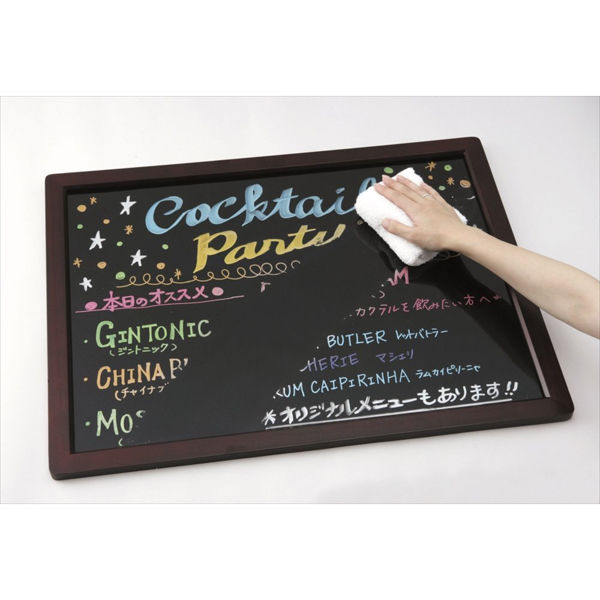 Cocktail
Party
本日のオススメ
GINTONIC
(ジントニック)
CHINA
(チャイナブ
MO
M
カクテルを飲みたい方へ
BUTLER レットバトラー
HERIE マシェリ
UM CAIPIRINHA ラムカイピリーニャ
*オリジナルメニューもあります!!